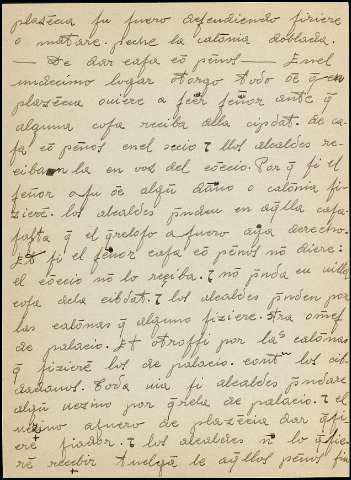 plazẽcia su fuero defendiendo firiere
o matare. peche la calõnia doblada.
— De dar casa cõ peños — Enel
undecimo logar otorgo todo oẽ q̃ en
plazẽcia ouiere a seer señor ante q̃
alguna cosa reciba dela cipdat. De ca-
sa cõ peños enel ⁊ llos alcaldes re-
ciban la en vos del cõceio. Por q̃ si el
señor o su oẽ algũ daño o calõnia fi-
zierẽ. los alcaldes p̃nden en aq̃lla casa
fasta q̃ el q̃reloso a fuero aya derecho.
Et si el señor casa cõ peños nõ diere:
el cõceio nõ lo reçiba. ⁊ nõ p̃nda en uilla
cosa dela cibdat. ⁊ los alcaldes p̃nden por
las calõnias q̃ alguno fiziere.
de palacio. Et otrossi por las calõnias
q̃ fizierẽ los de palacio. cont los cib-
dadanos. Toda uia si alcaldes p̃ndare
algũ uezino por q̃rela de palacio. ⁊ el
uezino afuero de plazẽcia dar q̃si-
ere fiador. ⁊ los alcaldes nõ lo q̃sie-
rẽ recebir tuelga le aq̃llos peños sin